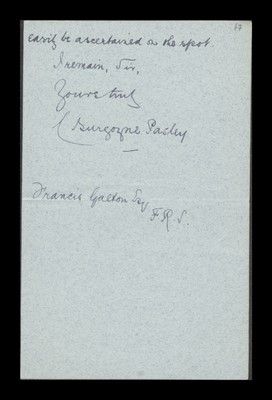 37
easily be ascertained on the spot.
I remain, Sir,
Yours truly
C Burgoyne Pasley
Francis Galton Esq
F.R.S.